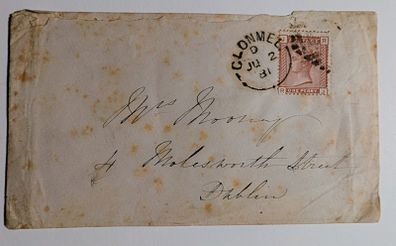 CLONMEL
D
JU 2
81
ONE PENNY
Mrs Mooney
4 Molesworth Street
Dublin